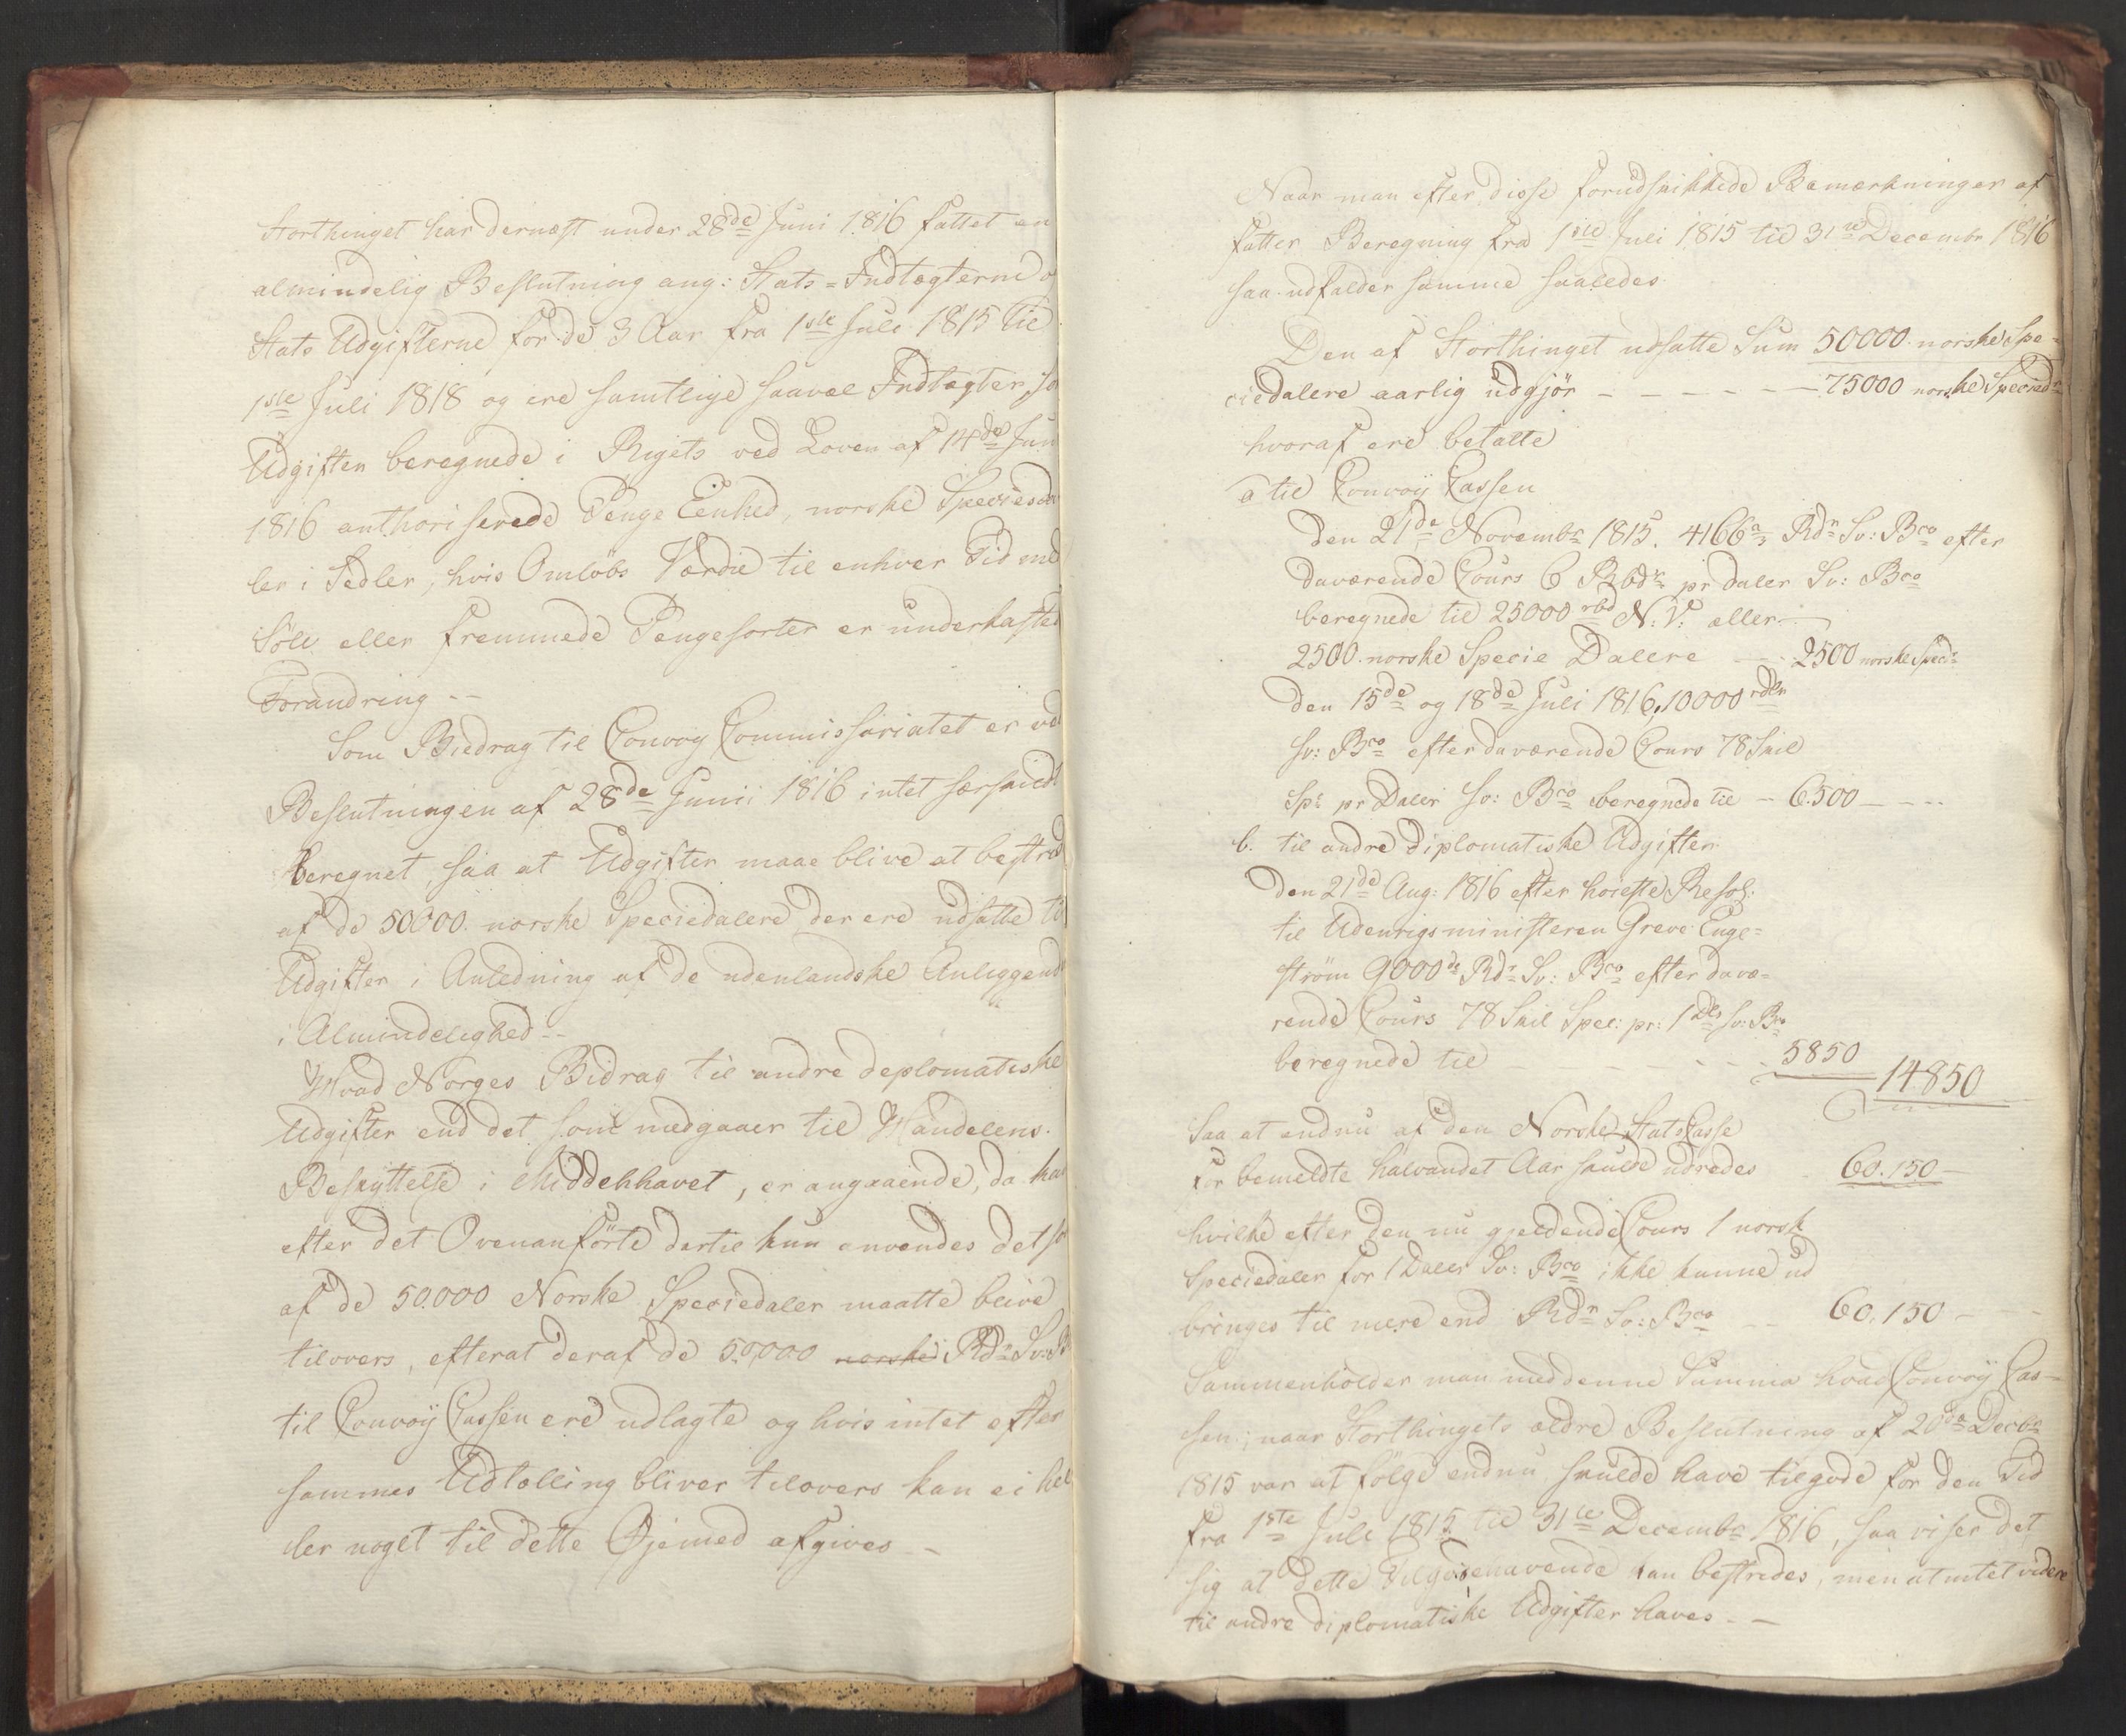 Storthinget har dernæst under 28de Juni 1816 fattet en
almindelig Beslutning ang: Stats-Indtægterne o
Stats Udgifterne for de 3 Aar fra 1ste Juli 1815 til
1ste Juli 1818 og ere samtlige saavel Indtægter, so
Udgifter beregnede i Rigets ved Loven af 14de Jun
1816 authoriserede Penge Eenhed, norske Speciesda
ler i Sedler, hvis Omløbs Værdie til enhver Tid med
Sölv eller fremmede Pengesorter er underkasted
Forandring --
Som Biedrag til Convoy Commissariatet er ved
Beslutningen af 28de Junii 1816 intet særskildt
beregnet, saa at Udgifter maae blive at bestred
af de 50000. norske Speciedalere der ere udsatte til
Udgifter i Anledning af de udenlandske Anliggend
i Almindelighed --
Hvad Norges Bidrag til andre deplomatiske
Udgifter end det som medgaaer til Handelens
Beskyttelse i Middelhavet, er angaaende, da kan
efter det Ovenanförte dertil kun anvendes det so
af de 50.000 Norske Speciedaler maatte blive
tilovers, efterat deraf de 50,000 norske Rdr Sv: B
til Convoÿ Cassen ere udlagte og hvis intet efter
sammes Udtælling bliver tilovers kan ei hel
ler noget til dette Øjemed afgives --
Naar man efter disse forudskikkede Bemærkninger af
fatter Beregning fra 1ste Juli 1815 til 31te Decembr 1816
saa udfalder samme saaledes
Den af Storthinget udsatte Sum 50000 norske Spe-
ciedalere aarlig udgjör - - - - - 75000 norske Specied
hvoraf ere betalte
a til Convoy Cassen
Den 21de Novembr 1815. 4166 Rdr Sv: Bco efter
daværende Cours 6 Rbdr pr daler Sv: Bco
beregnede til 25000 rbd N. V. eller
2500. norske Specie Dalere - - 2500 norske Specdr
Den 15de og 18de Juli 1816, 10000 rdlr
Sv: Bco efter daværende Cours 78 Skil
Spc pr Daler Sv: Bco beregnede til - 6.500 - - -
b. til andre diplomatiske Udgifter
Den 21de Aug: 1816 efter høieste Resol:
til Udenrigsministeren Greve Enge-
ström 9000de Rdr Sv: Bco efter davæ-
rende Cours 78 Skil Spec: pr: 1 Dlr Sv: Bco
beregnede til - - - - - 5850
14850
Saa at endnu af den Norske Stats Casse
for bemeldte halvandet Aar skulde udredes 60.150 -
hvilke efter den nu gjeldende Cours 1 norsk
Speciedaler for 1 Daler Sv: Bco ikke kunne ud
bringes til mere end Rdr Sv: Bco - - 60,150 -
Sammenholder man med denne Summa hvad Convoÿ Cas-
sen, naar Storthingets ældre Beslutning af 20de Decbr
1815 var at fölge endnu skulde have tilgode for den Tid
fra 1ste Juli 1815 til 31te Decembr 1816, saa viser det
sig at dette Tilgodehavende kan bestrides, men at intet videre
til andre diplomatiske Udgifter haves --